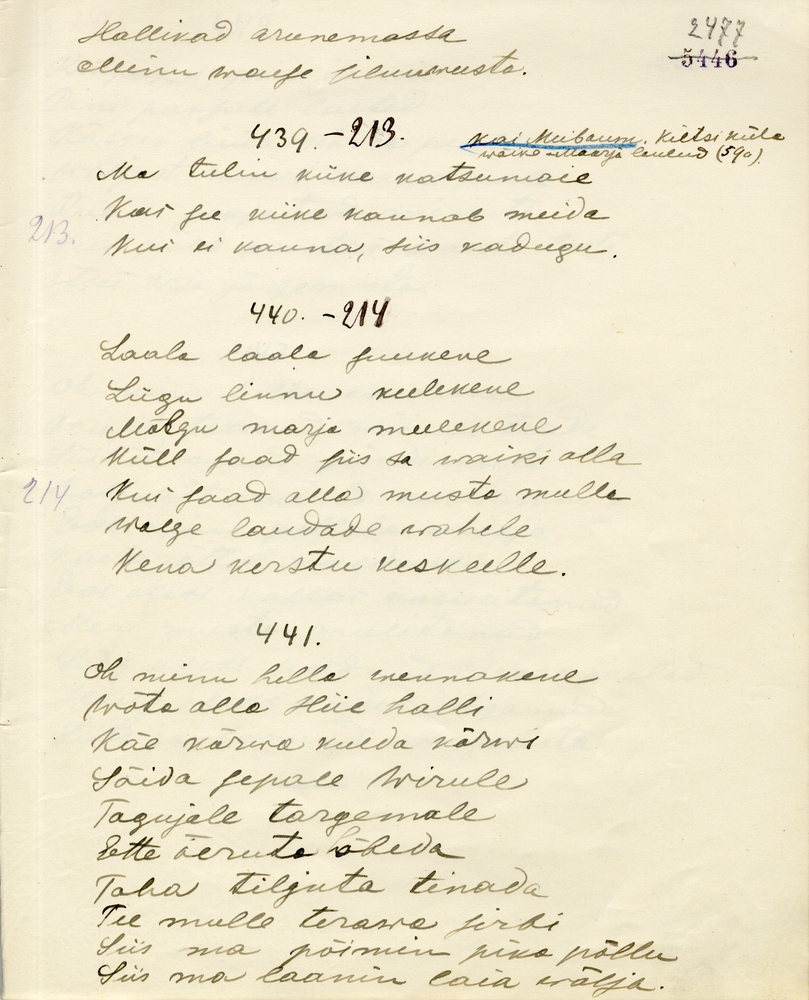 Hallikad arenemassa
Minu walge siluwusta.
2477
5446
439. - 213.
Kai Meibaum, Kiltsi küla
wäike-Maarja laulud (59a).
Ma tulin kiike katsumaie
Kas see kiike kannab meida
Kui ei kanna, siis kadugu.
213.
440. - 214
Laala laala suukene
Liigu linnu keelekene
Mõlgu marja meelekene
Küll saad siis sa waiki olla
Kui saad alla musta mulla
Walge laudade wahele
Kena kerstu keskeelle.
214
441.
Oh minu hella wennakene
Wõta alla Hiie halli
Käe kõrwa kulda kõrwi
Sõida sepale Wirule
Tagujale targemale
Ette õeruta hõbeda
Taha tiljuta tinada
Tee mulle terawa sirbi
Siis ma põimin pika põllu
Siis ma laanin laia wälja.